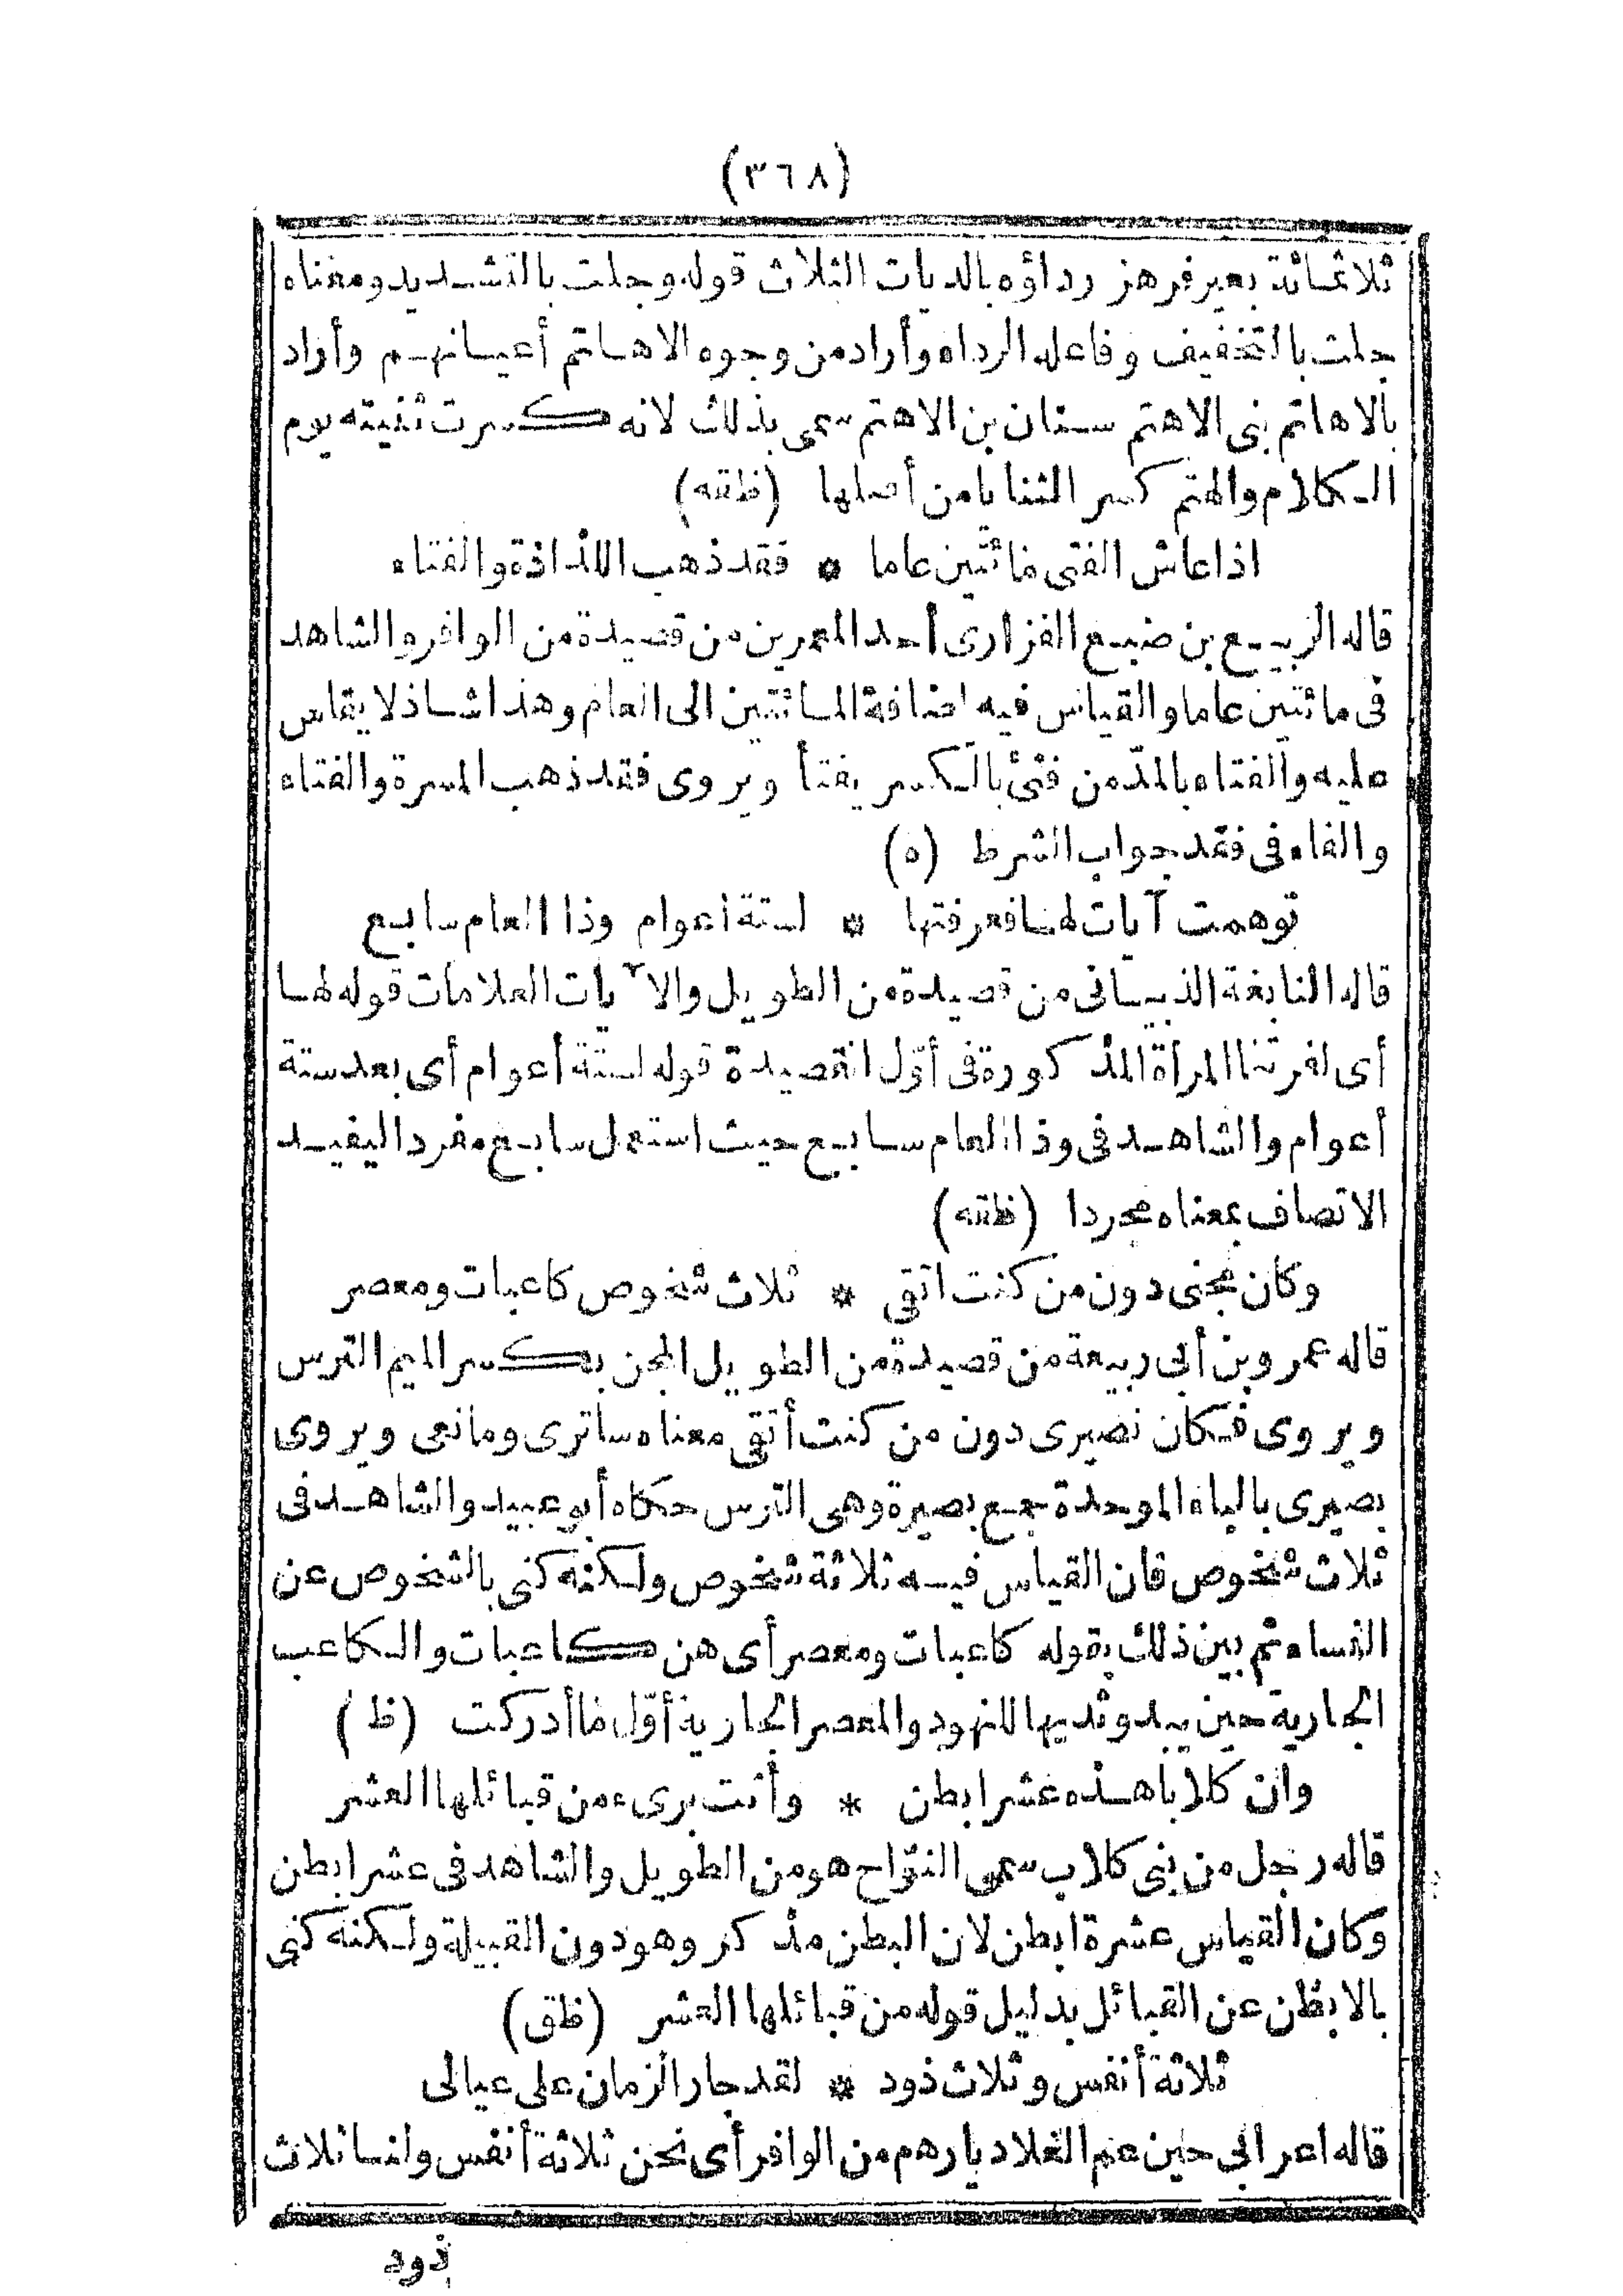 (٣٦٨)
ثلاثمائة بعير فرهن رداؤه بالديات الثلاث قوله وجلت بالتشديد ومعناه
جلت بالتخفيف وفاعله الرداء وأراد من وجوه الاهاتم أعيانهم وأراد
بالاهاتم بنى الاهتم سنان بن الاهتم سمى بذلك لانه كسرت ثنيته يوم
الكلام والهتم كسر الثنايا من أصلها (ظقه)
اذا عاش الفتى مائتين عاما * فقد ذهب اللذاذة والفتاء
قاله الربيع بن ضبيع الفزارى أحد المعمرين من قصيدة من الوافر والشاهد
فى مائتين عاما والقياس فيه اضافة المائتين الى العام وهذا شاذ لا يقاس
عليه والفتاء بالمد من فتئ بالكسر يفتأ ويروى فقد ذهب المسرة والفتاء
والفاء فى فقد جواب الشرط (ه)
توهمت آيات لها فعرفتها * لستة اعوام وذا العام سابع
قاله النابغة الذبيانى من قصيدة من الطويل والآيات العلامات قوله لها
أى لفرتنا المرأة المذكورة فى أوّل القصيدة قوله لستة أعوام أى بعد ستة
أعوام والشاهد فى وذا العام سابع حيث استعمل سابع مفردا ليفيد
الاتصاف بمعناه مجردا (ظقه)
وكان مجنى دون من كنت اتقى * ثلاث شخوص كاعبات ومعصر
قاله عمرو بن أبى ربيعة من قصيدة من الطويل المجن بكسر الميم الترس
ويروى فكان نصيرى دون من كنت أتقى معناه ساترى ومانعى ويروى
بصيرى بالباء الموحدة جمع بصيرة وهى الترس حكاه أبو عبيد والشاهد فى
ثلاث شخوص فان القياس فيه ثلاثة شخوص ولكنه كنى بالشخوص عن
النساء ثم بين ذلك بقوله كاعبات ومعصر أى هن كاعبات والكاعب
الجارية حين يبدو ثديها للنهود والمعصر الجارية أوّل ما أدركت (ظ)
وان كلابا هذه عشر ابطن * وأنت برىء من قبائلها العشر
قاله رجل من بنى كلاب سمى النوّاح هو من الطويل والشاهد فى عشر ابطن
وكان القياس عشرة ابطن لان البطن مذكر وهو دون القبيلة ولكنه كنى
بالابطن عن القبائل بدليل قوله من قبائلها العشر (ظق)
ثلاثة أنفس وثلاث ذود * لقد جار الزمان على عيالى
قاله اعرابى حين عم الغلاد يارهم من الوافر أى نحن ثلاثة أنفس ولنا ثلاث
ذود